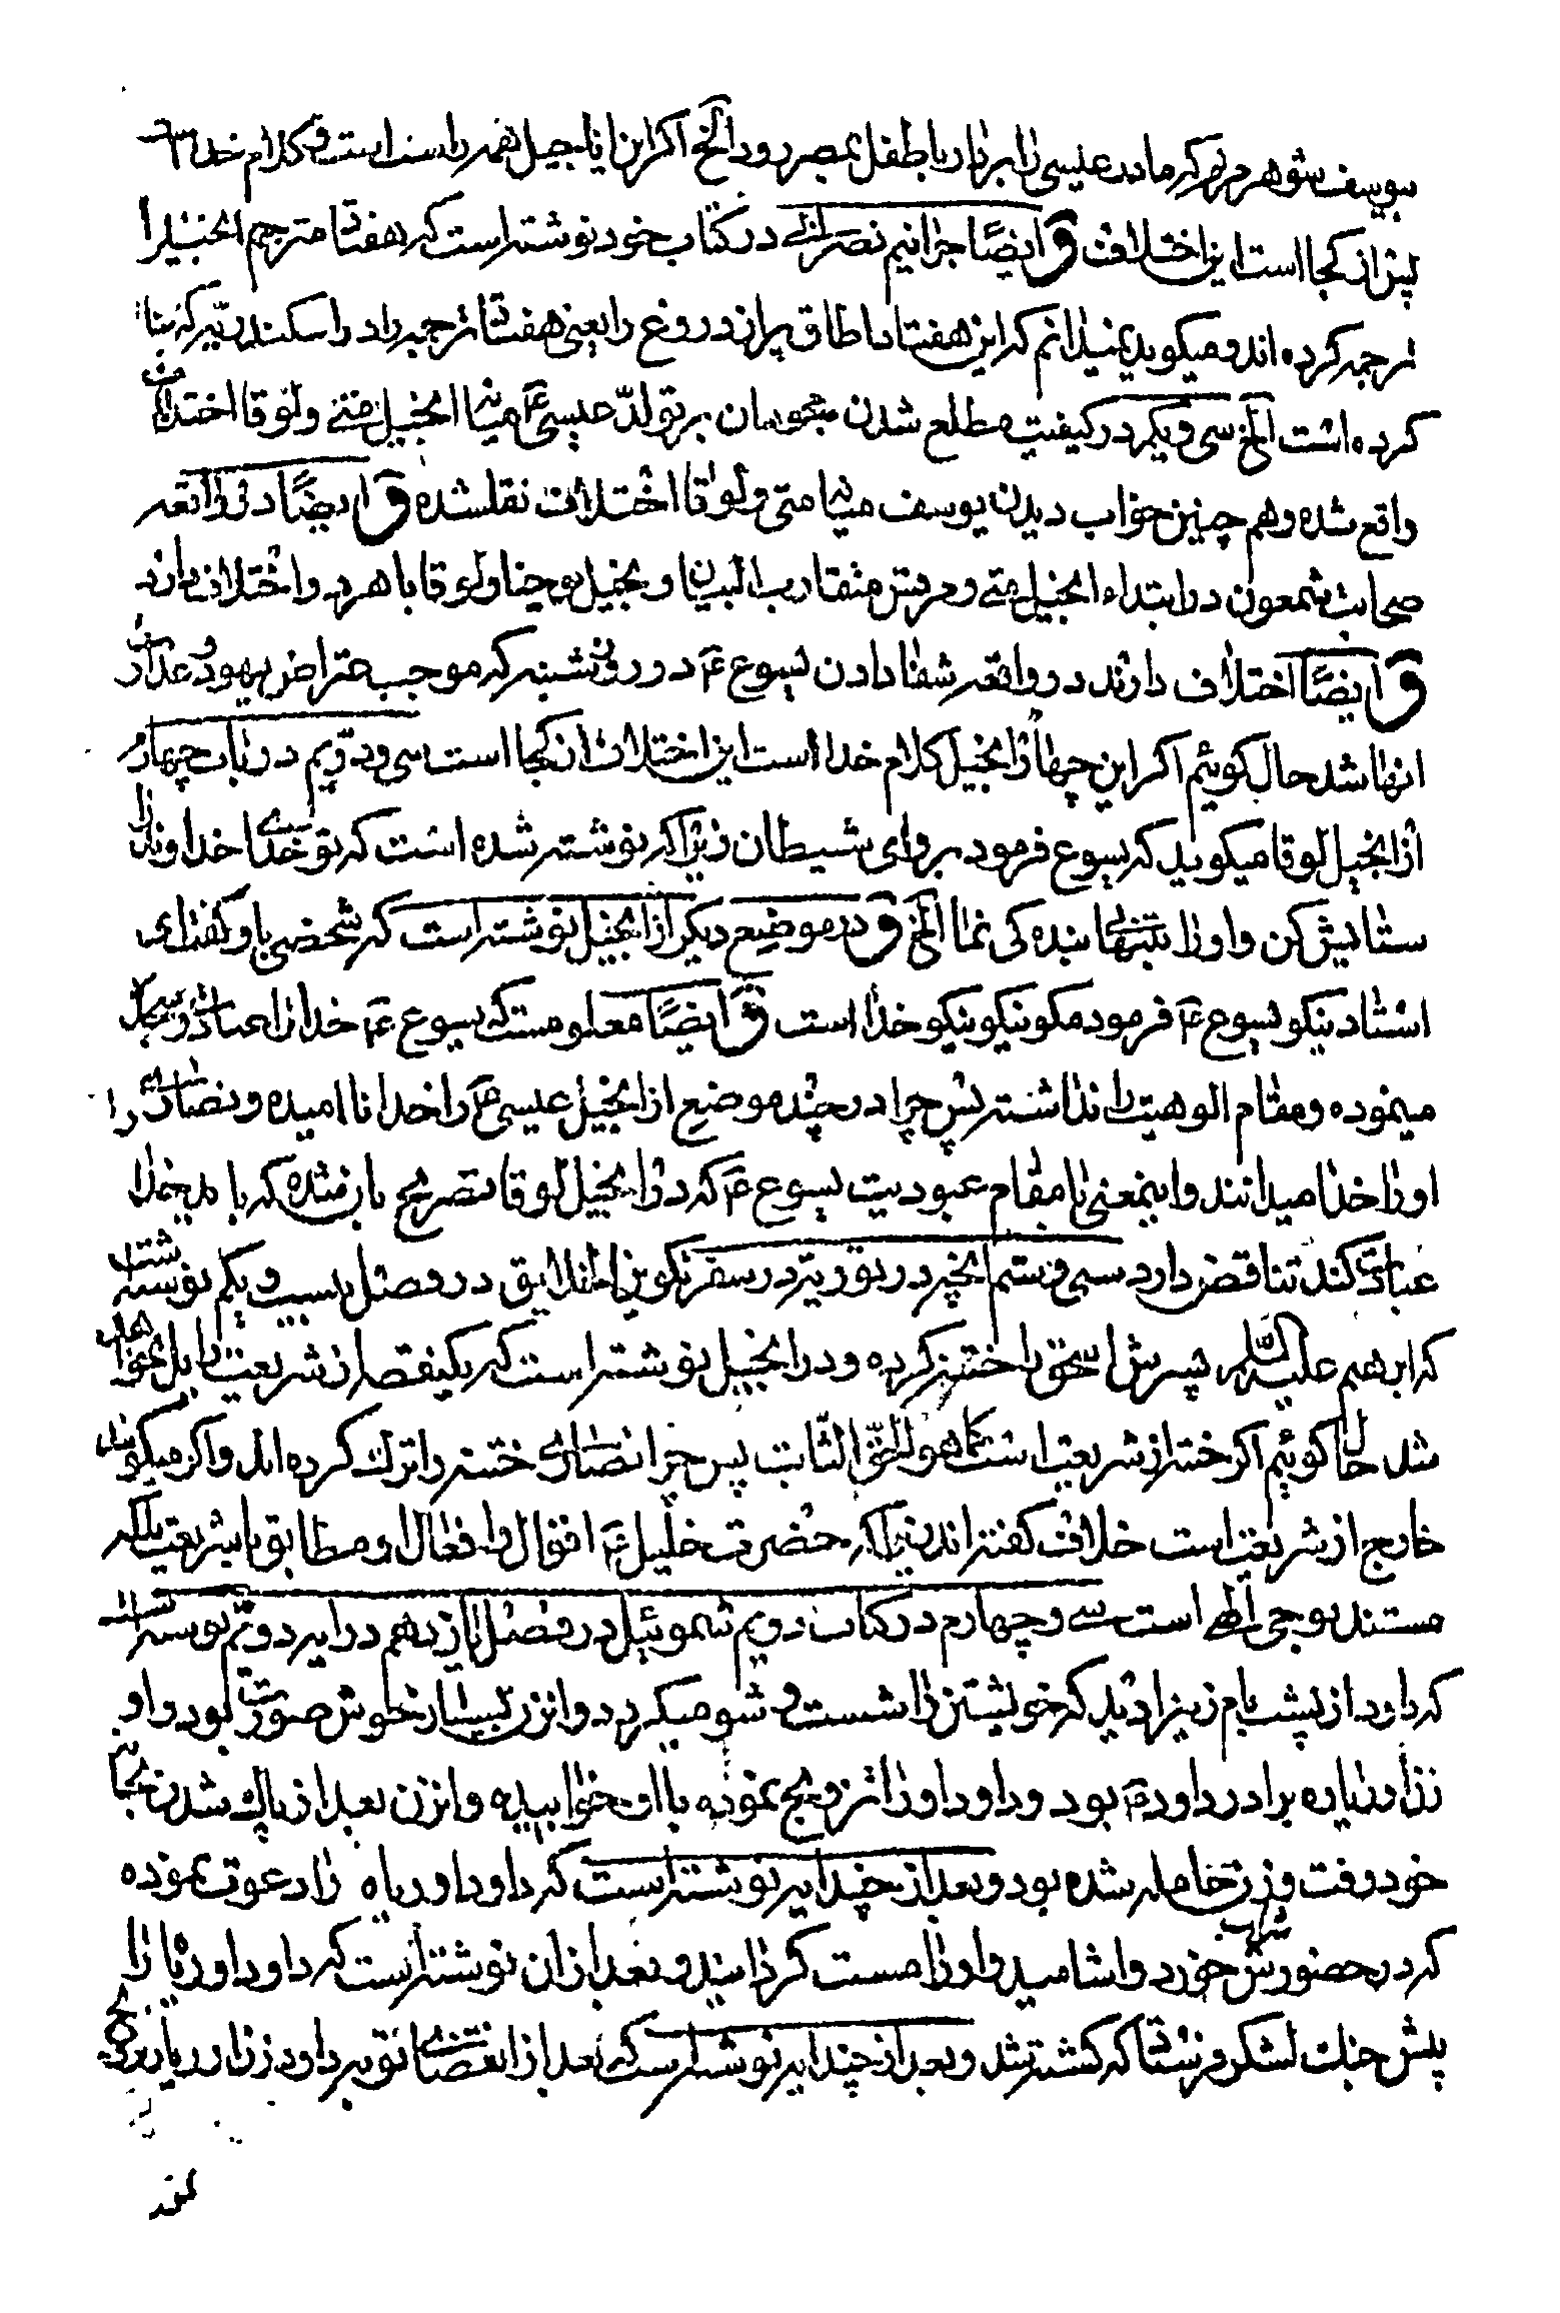 بیوسف شوهر مریم که مادر عیسی را بردار با طفل بمصر رود الخ اکر این اناجیل همه راست است و کلام خدا
پس از کجا است این اختلافات و ایضًا جرانیم نصرانی در کتاب خود نوشته است که هفتاد مترجم انجیل را
ترجمه کرده اند و میکوید نمیدانم که این هفتاد اطاق پر از دروغ را یعنی هفتاد ترجمه را در اسکندریه که بنا
کرده است الخ سی و یکم در کیفیت مطلع شدن مجوسان بر تولد عیسی ع میانه انجیل متی و لوقا اختلاف
واقع شده و هم چنین خواب دیدن یوسف میانه متی و لوقا اختلاف نقل شده و ایضًا در واقعه
صحابت شمعون در ابتداء انجیل متی و مرقس متقارب البیان و انجیل یوحنا و لوقا با هر دو اختلاف دارند
و ایضًا اختلاف دارند در واقعه شفا دادن یسوع ع در روز شنبه که موجب اعتراض یهود و عداوت
انها شد حال کوئیم اکر این چهار انجیل کلام خدا است این اختلاف از کجا است سی و دویم در باب چهارم
از انجیل لوقا میکوید که یسوع فرمود برو ای شیطان زیرا که نوشته شده است که تو خدای خداوند را
ستایش کن و او را بتنهائی بنده کی نما الخ و در موضع دیکر از انجیل نوشته است که شخصی باو کفت ای
استاد نیکو یسوع ع فرمود مکو نیکو نیکو خدا است و ایضًا معلومست که یسوع ع خدا را عبادت و سجده
مینموده و مقام الوهیت را نداشته پس چرا در چند موضع از انجیل عیسی ع را خدا نامیده و نصاری را
او را خدا میدانند و اینمعنی با مقام عبودیت یسوع ع که در انجیل لوقا تصریح بان شده که باید خدا را
عبادت کند تناقض دارد سی و سیم انچه در توریة در سفر تکوین الخلایق در فصل بیست و یکم نوشته
که ابرهیم علیه السلام پسرش اسحق را ختنه کرده و در انجیل نوشته است که یکنقطه از شریعت زایل نخواهد
شد حال کوئیم اکر ختنه از شریعت است کما هو الحق الثابت پس چرا نصاری ختنه را ترک کرده اند و اکر میکویند
خارج از شریعت است خلاف کفته اند زیرا که حضرت خلیل ع اقوال و افعال او مطابق با شریعت بلکه
مستند بوحی الهی است سی و چهارم در کتاب دویم شموئیل در فصل یازدهم در ایه دویم نوشته است
که داود از پشت بام زنیرا دید که خویشتن را شست و شو میکرد و انزن بسیار خوش صورت بود و او
زن اوریاه برادر داود ع بود و داود او را تزویج نموده با او خوابیده و انزن بعد از پاک شدن بخانه
خود رفت و زن حامله شده بود و بعد از چند ایه نوشته است که داود اوریاه را دعوت نموده
که در حضورش شراب خورد و اشامید و او را مست کردانید و بعد از ان نوشته است که داود اوریا را
پیش جنک لشکر فرستاد که کشته شد و بعد از چند ایه نوشته است که بعد از انقضای توبه داود زن اوریا